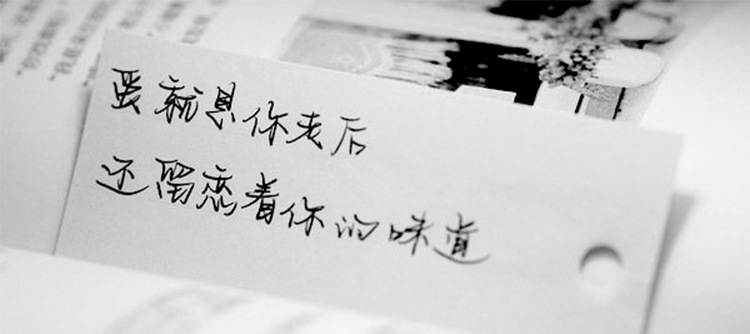 爱就是你走后
还留恋着你的味道